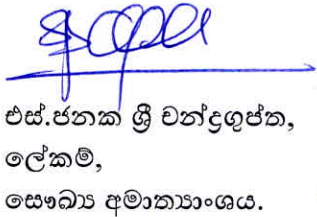 එස්.ජනක ශ්‍රී චන්ද්‍රගුප්ත,
ලේකම්,
සෞඛ්‍ය අමාත්‍යාංශය.